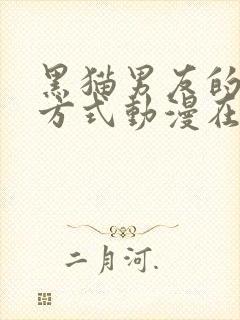 黑猫男友的
方式動漫在
二月河.